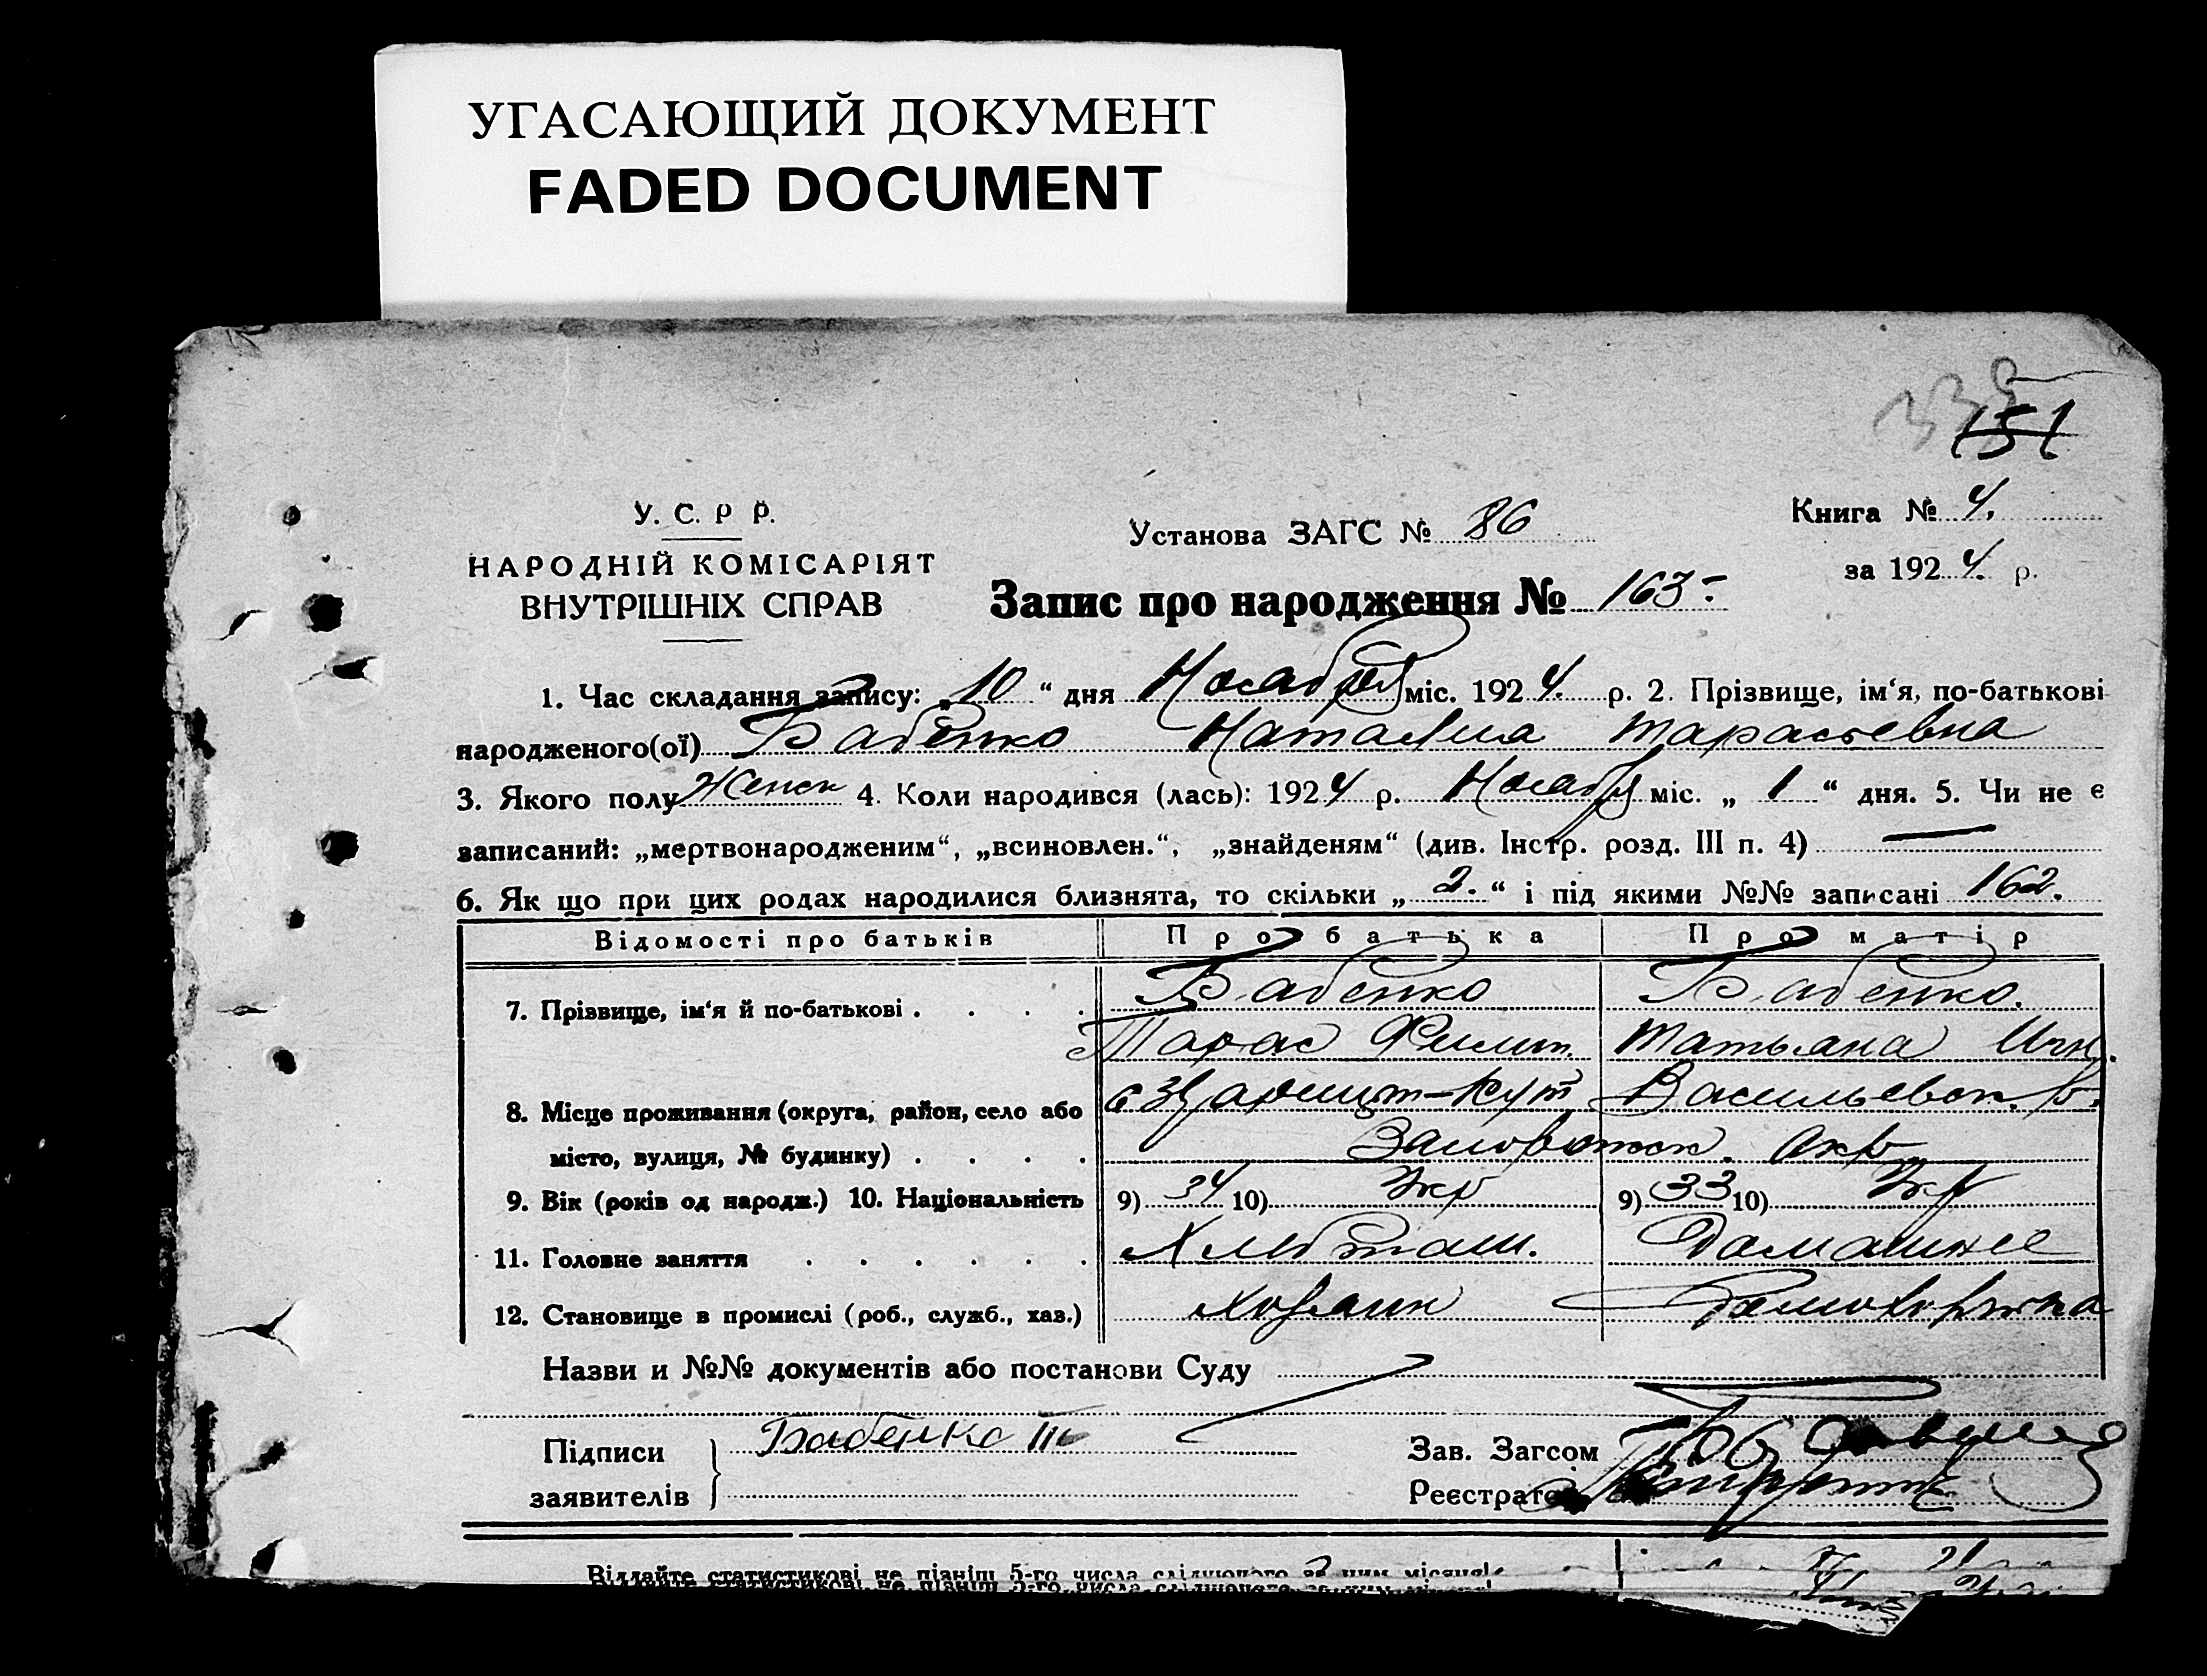 УГАСАЮЩИЙ ДОКУМЕНТ
FADED DOCUMENT
339
151
У. С. Р Р.
НАРОДНІЙ КОМІСАРІЯТ
ВНУТРІШНІХ СПРАВ
Установа ЗАГС № 86
Книга № 4.
за 1924. р.
Запис про народження № 163-
1. Час складання запису: „10“ дня Ноября міс. 1924. р. 2. Прізвище, ім‘я, по-батькові
народженого(ої) Бабенко Наталия Тарасьевна
3. Якого полу Женск 4. Коли народився (лась): 1924 р. Ноября міс. „1“ дня. 5. Чи не є
записаний: „мертвонародженим“, „всиновлен.“, „знайденям“ (див. Інстр. розд. III п. 4) —
6. Як що при цих родах народилися близнята, то скільки „2.“ і під якими №№ записані 162.
Відомості про батьків Про батька Про матір
7. Прізвище, ім‘я й по-батькові . . . . Бабенко Бабенко.
Тарас Филип. Татьяна
8. Місце проживання (округа, район, село або Васильевск. р.
місто, вулиця, № будинку) . . . . Запорожск. окр.
9. Вік (років од народж.) 10. Національність 9) 34 10) Укр 9) 33 10) Укр
11. Головне заняття . . . . . . Хлебопаш. Домашнее
12. Становище в промислі (роб., служб., хаз.) Хозяин Домохозяйка
Назви и №№ документів або постанови Суду
Підписи Бабенко Т
заявителів
Зав. Загсом
Реєстратор
Віддайте статистикові не пізніш 5-го числа слідуючого за цим місяця!